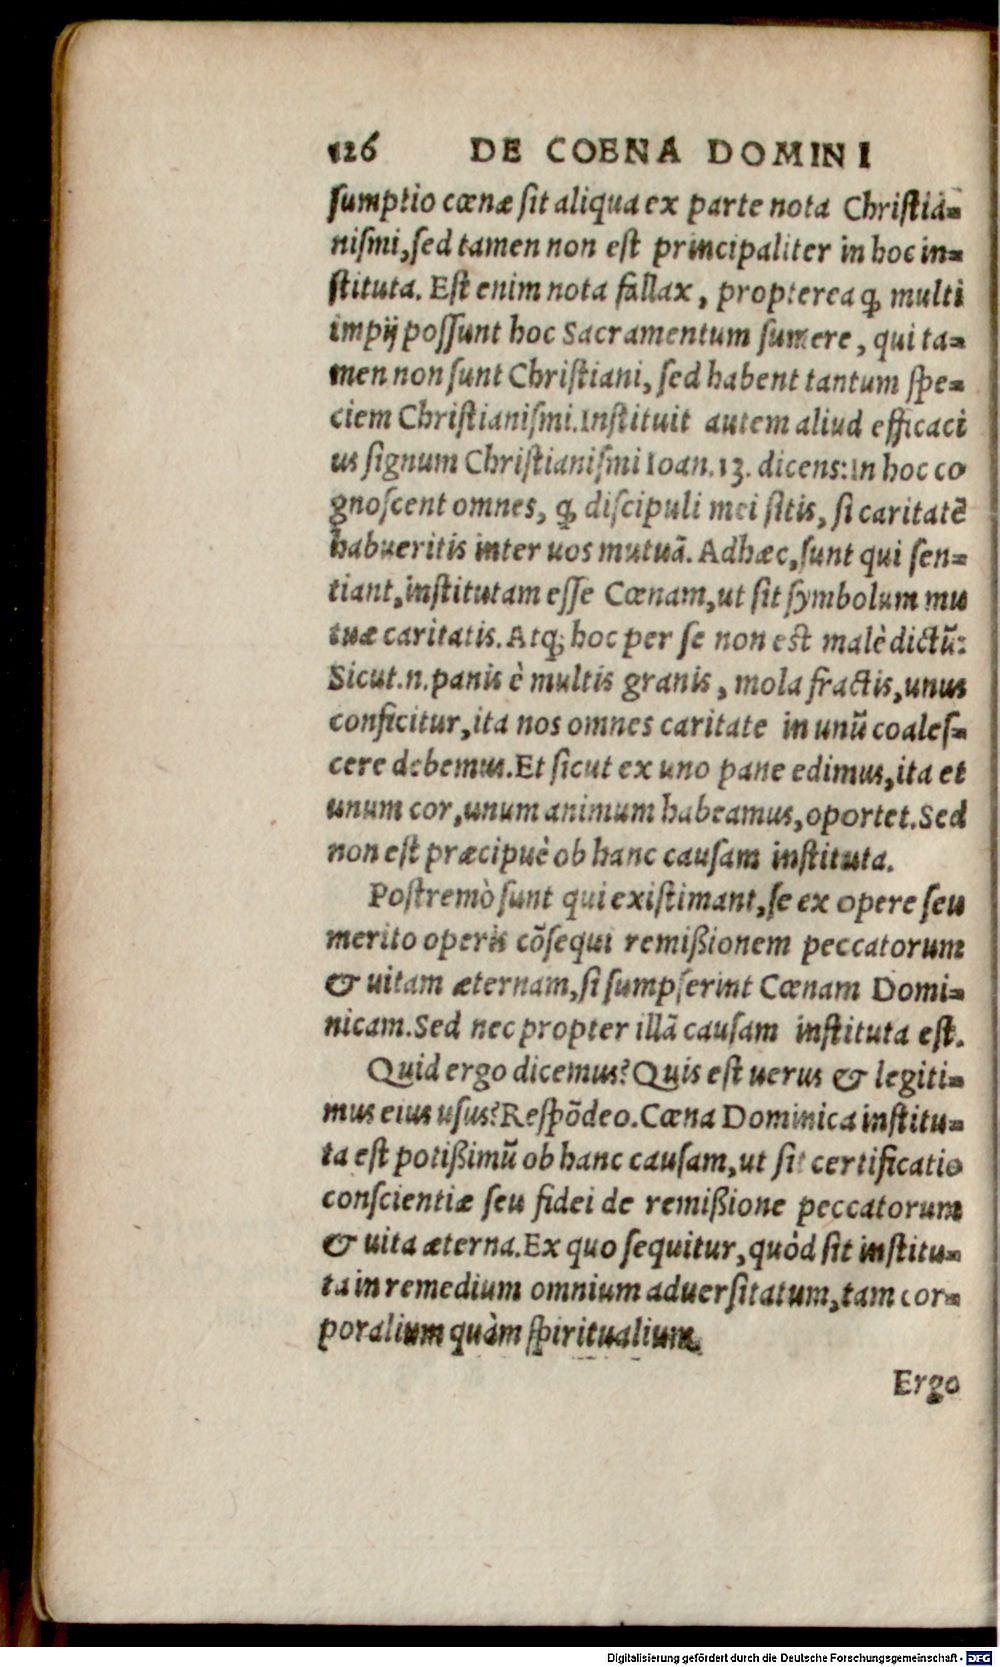 126 DE COENA DOMINI
sumptio cœnæ sit aliqua ex parte nota Christia-
nismi, sed tamen non est principaliter in hoc in-
stituta. Est enim nota fallax, propterea ꝙ multi
impij possunt hoc Sacramentum sumere, qui ta-
men non sunt Christiani, sed habent tantum spe-
ciem Christianismi. Instituit autem aliud efficaci
us signum Christianismi Ioan. 13. dicens: In hoc co
gnoscent omnes, ꝙ discipuli mei sitis, si caritatẽ
habueritis inter uos mutuã. Adhæc, sunt qui sen-
tiant, institutam esse Cœnam, ut sit symbolum mu
tuæ caritatis. Atq; hoc per se non est malè dictũ:
Sicut.n. panis è multis granis, mola fractis, unus
conficitur, ita nos omnes caritate in unũ coales-
cere debemus. Et sicut ex uno pane edimus, ita et
unum cor, unum animum habeamus, oportet. Sed
non est præcipuè ob hanc causam instituta.
Postremò sunt qui existimant, se ex opere seu
merito operis cõsequi remißionem peccatorum
& uitam æternam, si sumpserint Cœnam Domi-
nicam. Sed nec propter illã causam instituta est.
Quid ergo dicemus? Quis est uerus & legiti-
mus eius usus? Respõdeo. Cœna Dominica institu-
ta est potißimũ ob hanc causam, ut sit certificatio
conscientiæ seu fidei de remißione peccatorum
& uita æterna. Ex quo sequitur, quòd sit institu-
ta in remedium omnium aduersitatum, tam cor-
poralium quàm spiritualium.
Ergo
Digitalisierung gefördert durch die Deutsche Forschungsgemeinschaft - DFG